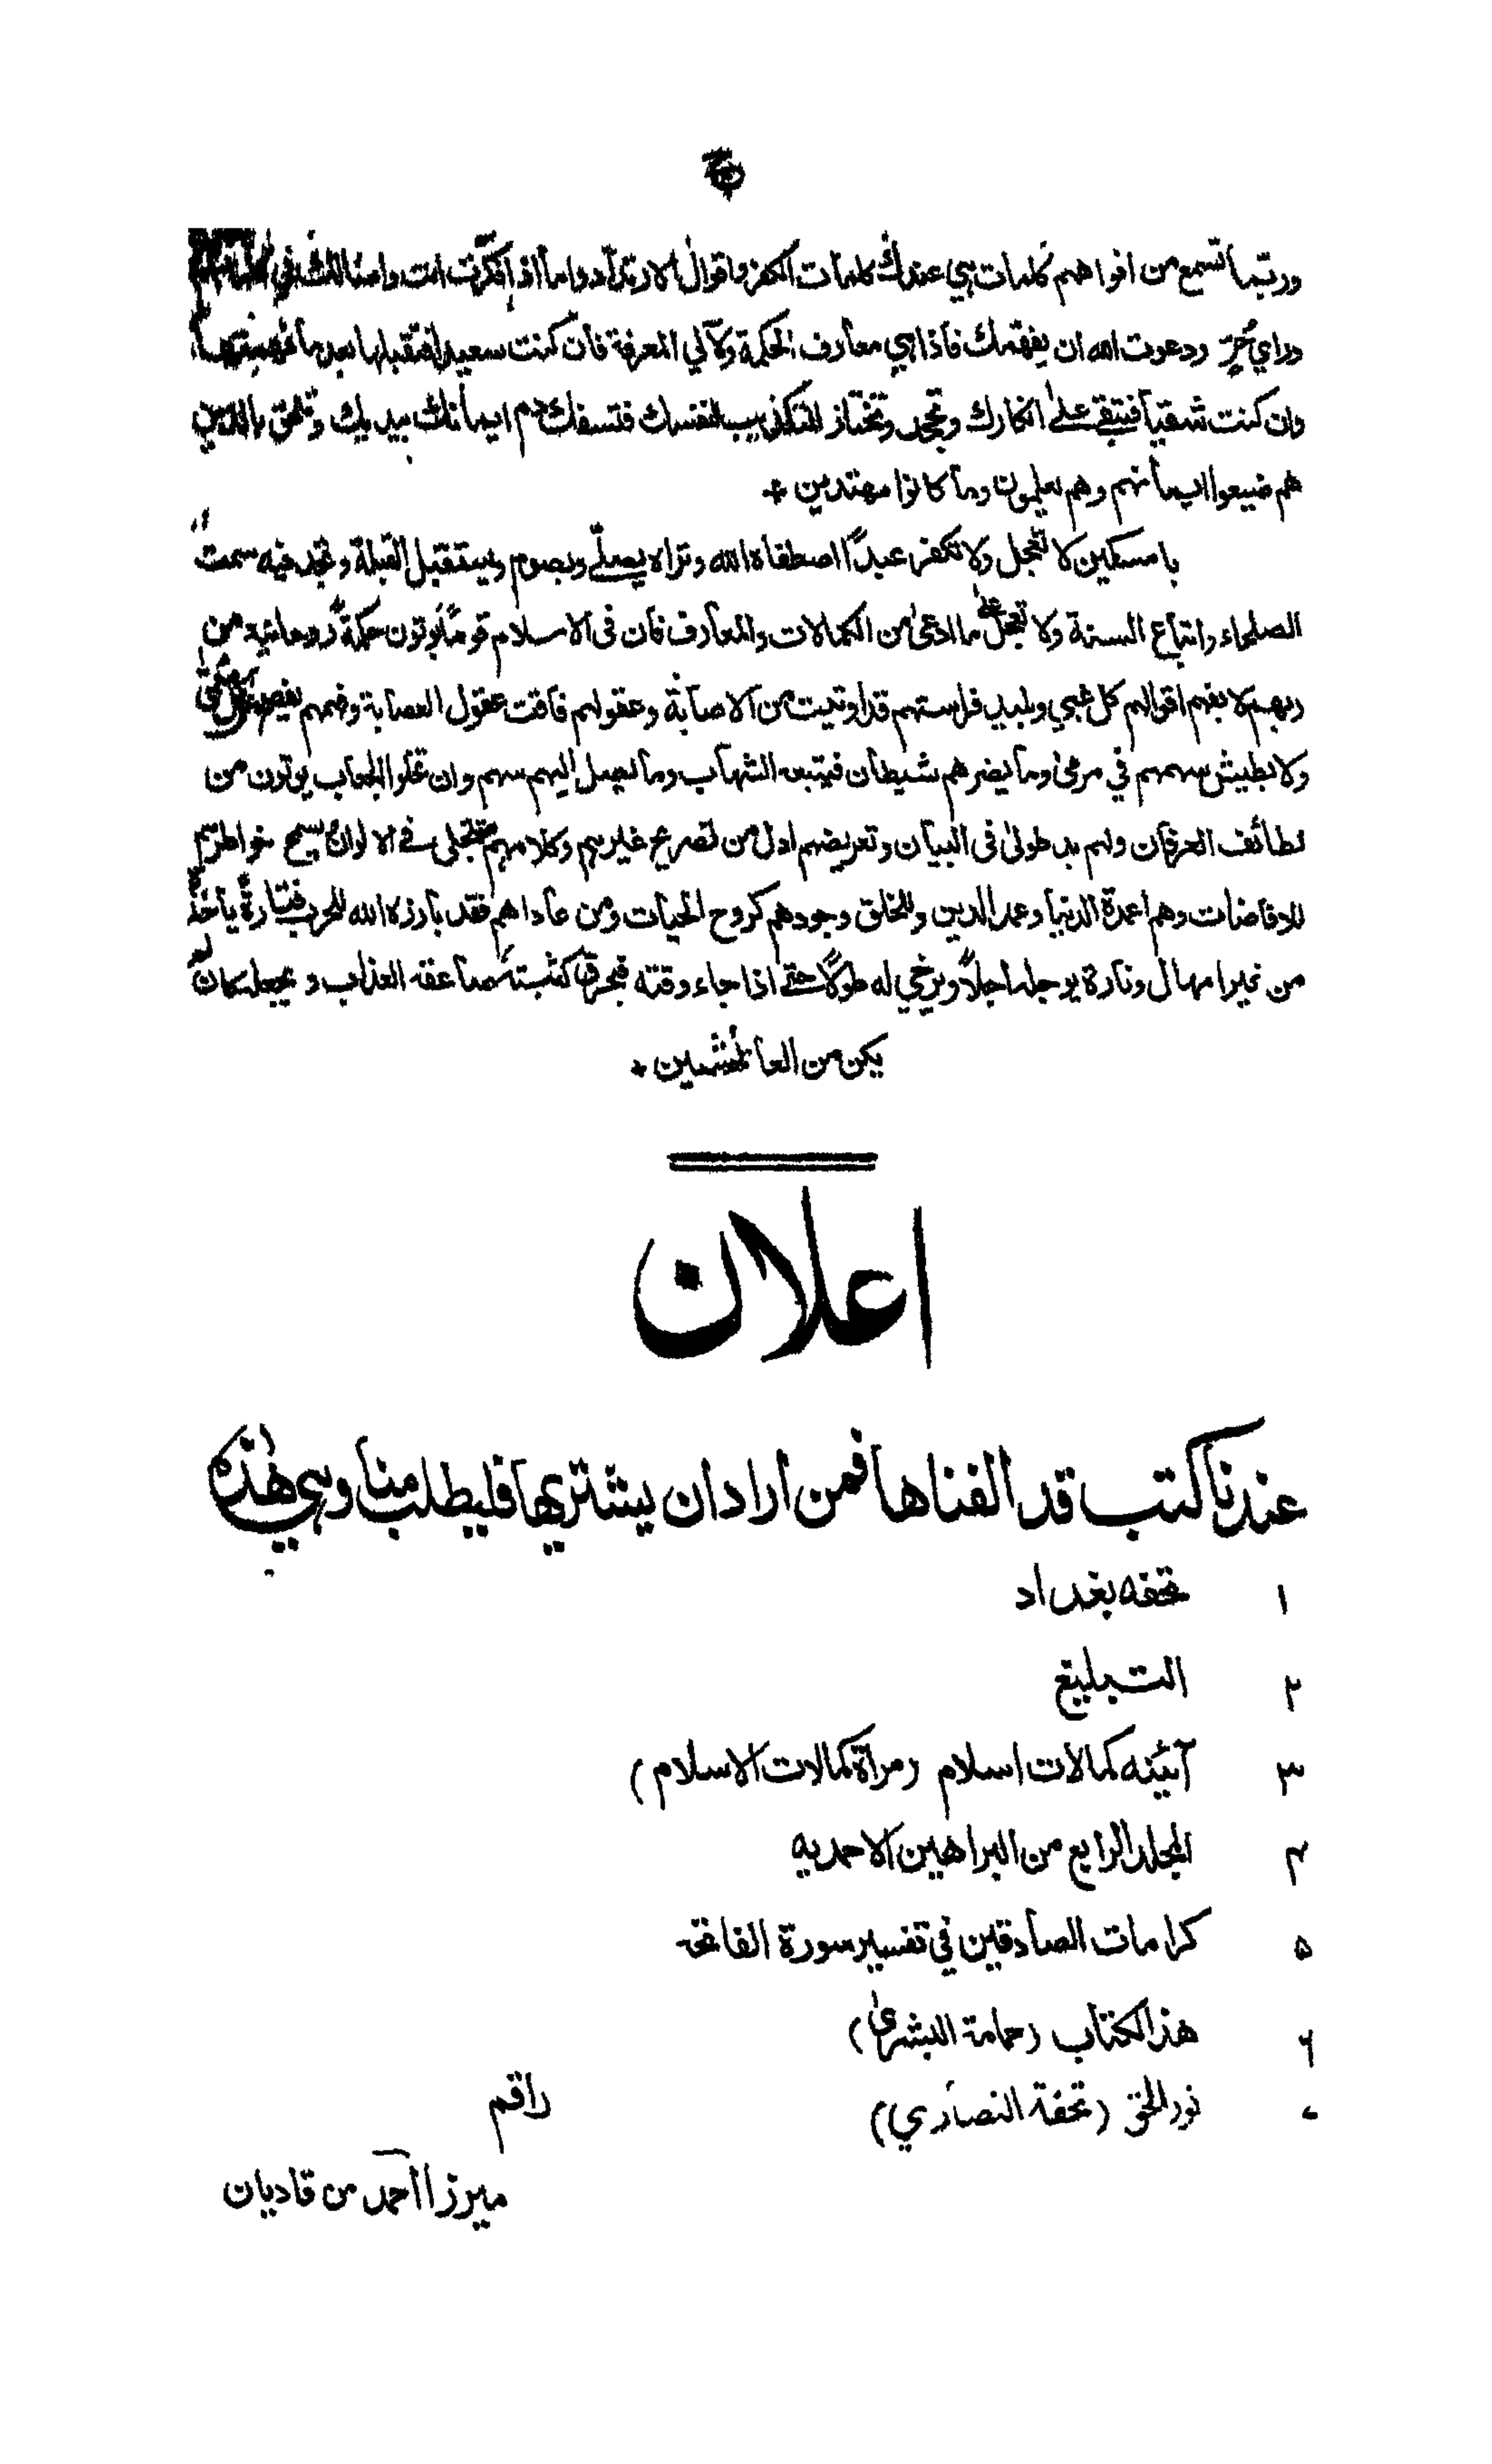 وربّما تسمع من افواههم كلمات هي عندك كلمات الكفر واقوال الارتداد واما اذا فكّرت انت وامثالك في
ورای حُرّ ودعوت الله ان يفهّمك فاذا هي معارف الحكمة ولآلي المعرفة فان كنت سعيدا فتقبلها بعد ما فهمتها
وان كنت شقيا فتبقى على انكارك وتجحد وتختار التكذيب لنفسك فتسفك دم ايمانك بيديك وتلحق بالذين
هم ضيعوا ايمانهم وهم يعلمون وما كانوا مهتدين ٭
يا مسكين لا تعجل ولا تكفر عبدًا اصطفاه الله وتراه يصلّي ويصوم ويستقبل القبلة وتجد فيه سمت
الصلحاء واتباع السنة ولا تعجل على ما ادعى من الكمالات والمعارف فان فى الاسلام قومًا يوتون حكمةً روحانية من
ربهم لا يفهم اقوالهم كل غبي وبليد فراستهم قد اوتيت من الاصابة وعقولهم فاقت عقول العصابة وفهمهم
ولا يطيش سهمهم في مرمى وما يضرهم شيطان فيتبعه الشهاب وما يصل اليهم سهم وان تخلوا الجعاب يوتون من
لطائف العرفان ولهم يد طولى فى البيان وتعريضهم ادل من تصريح غيرهم وكلامهم يتجلى فى الالوان يسمح خواطرهم
للافاضات وهم اعمدة الدنيا وعمد الدين وللخلق وجودهم كروح الحيات ومن عاداهم فقد بارزه الله للحرب فتارةً يأخذه
من غير امهال وتارة يوجله اجلاً ويرخي له طولاً حتى اذا جاء وقته فيحرق كثبته صاعقه العذاب ويجعله كان لم
يكن من العائشين ٭
اعلان
عندنا كتب قد الفناها فمن اراد ان يشتريها فليطلب منا وهي هذه
۱ تحفه بغداد
۲ التبليغ
۳ آئينه كمالات اسلام (مراة كمالات الاسلام)
۴ المجلد الرابع من البراهين الاحمديه
۵ كرامات الصادقين في تفسير سورة الفاتحة
۶ هذا الكتاب (حمامة البشرىٰ)
۷ نور الحق (تحفة النصارى)
راقم
ميرزا احمد من قاديان